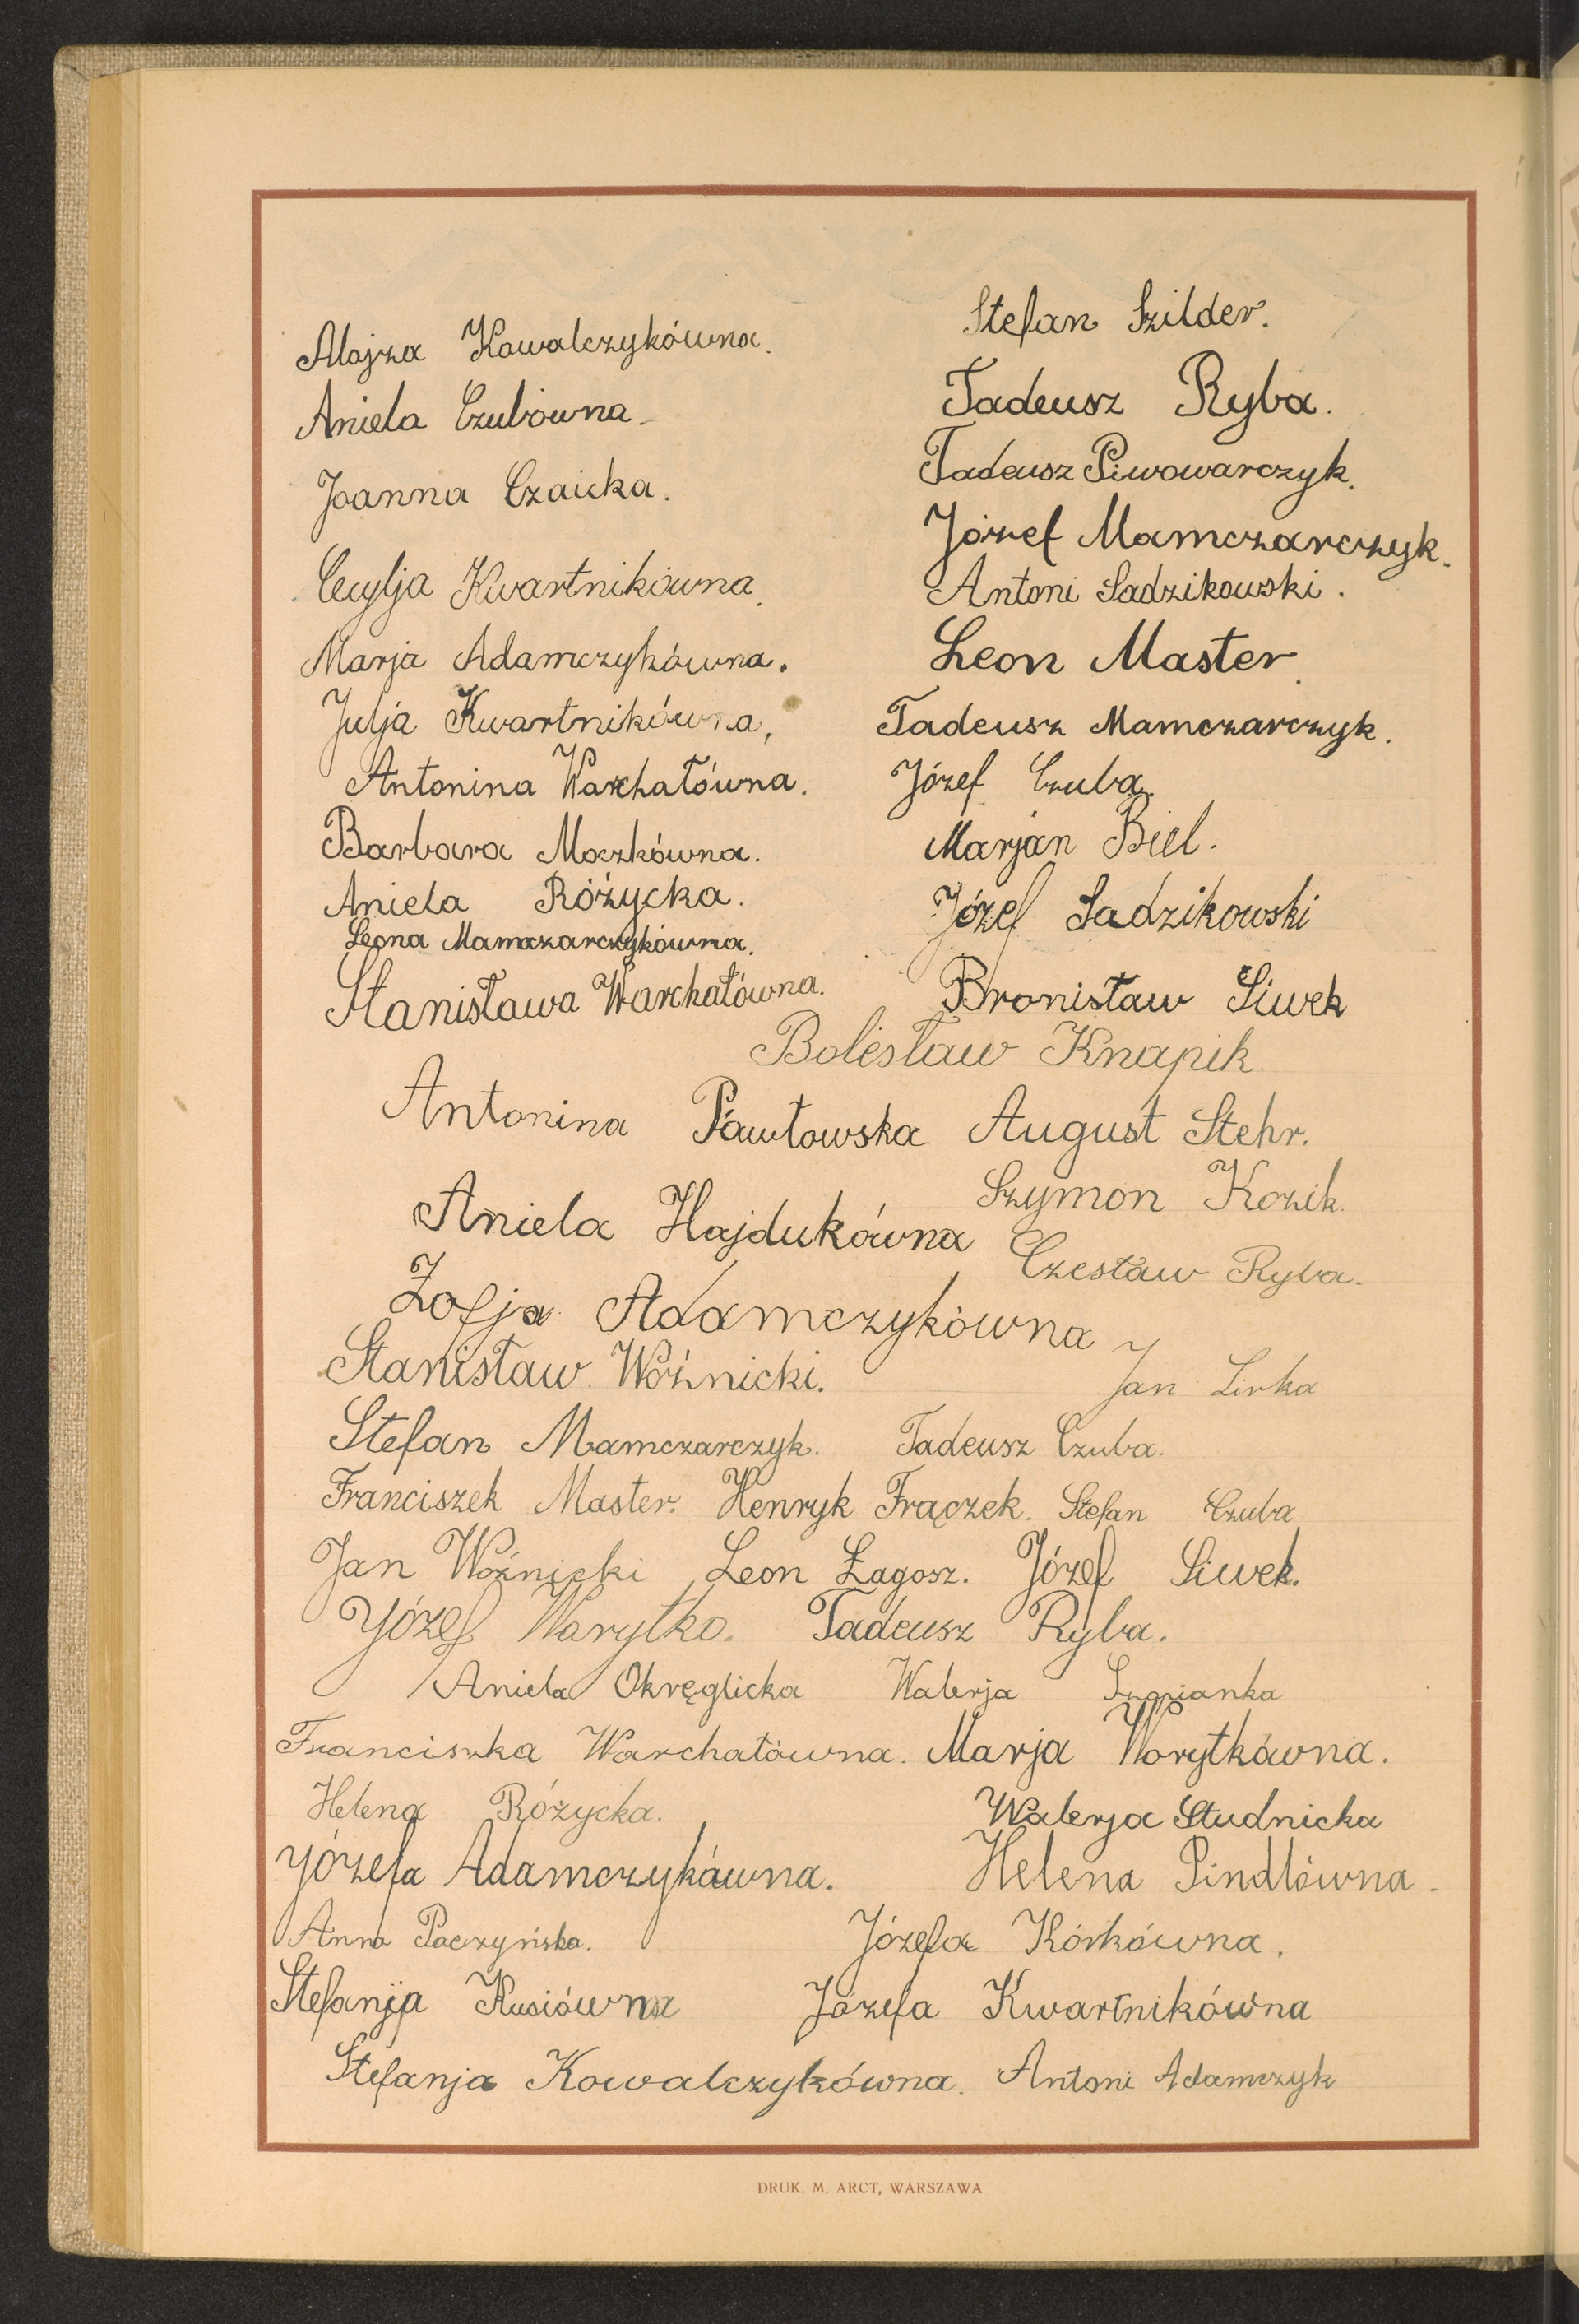 Stefan Szilder.
Alojza Kowalczykówna.
Tadeusz Ryba.
Aniela Czubówna
Tadeusz Piwowarczyk.
Joanna Czaicka.
Józef Mamczarczyk.
Cecylja Kwartnikówna.
Antoni Sadzikowski.
Marja Adamczykówna.
Leon Master.
Julja Kwartnikówna,
Tadeusz Mamczarczyk.
Antonina Warchałówna.
Józef Czuba.
Barbara Moczkówna.
Marjan Biel.
Aniela Różycka.
Józef Sadzikowski
Leona Mamczarczykówna.
Stanisława Warchałówna.
Bronisław Siwek
Bolesław Knapik.
Antonina Pawłowska
August Stehr.
Szymon Kozik.
Aniela Hajdukówna
Czesław Ryba.
Zofja Adamczykówna
Stanisław Woźnicki.
Jan Lirka
Stefan Mamczarczyk. Tadeusz Czuba.
Franciszek Master. Henryk Frączek. Stefan Czuba
Jan Woźnicki Leon Łagosz. Józef Siwek.
Józef Warytko. Tadeusz Ryba.
Aniela Okręglicka Walerja
Franciszka Warchałówna. Marja Worytkówna.
Helena Różycka. Walerja Studnicka
Józefa Adamczykówna. Helena Pindlówna.
Anna Paczyńska. Józefa Kórkówna.
Stefanja Kusiówna Józefa Kwartnikówna
Stefanja Kowalczykówna. Antoni Adamczyk
DRUK. M. ARCT, WARSZAWA